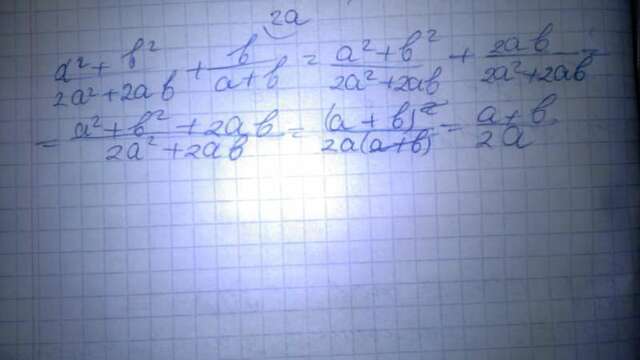 2a
a² + b² / 2a² + 2ab + b / a + b = a² + b² / 2a² + 2ab + 2ab / 2a² + 2ab =
= a² + b² + 2ab / 2a² + 2ab = (a + b)² / 2a(a+b) = a + b / 2a